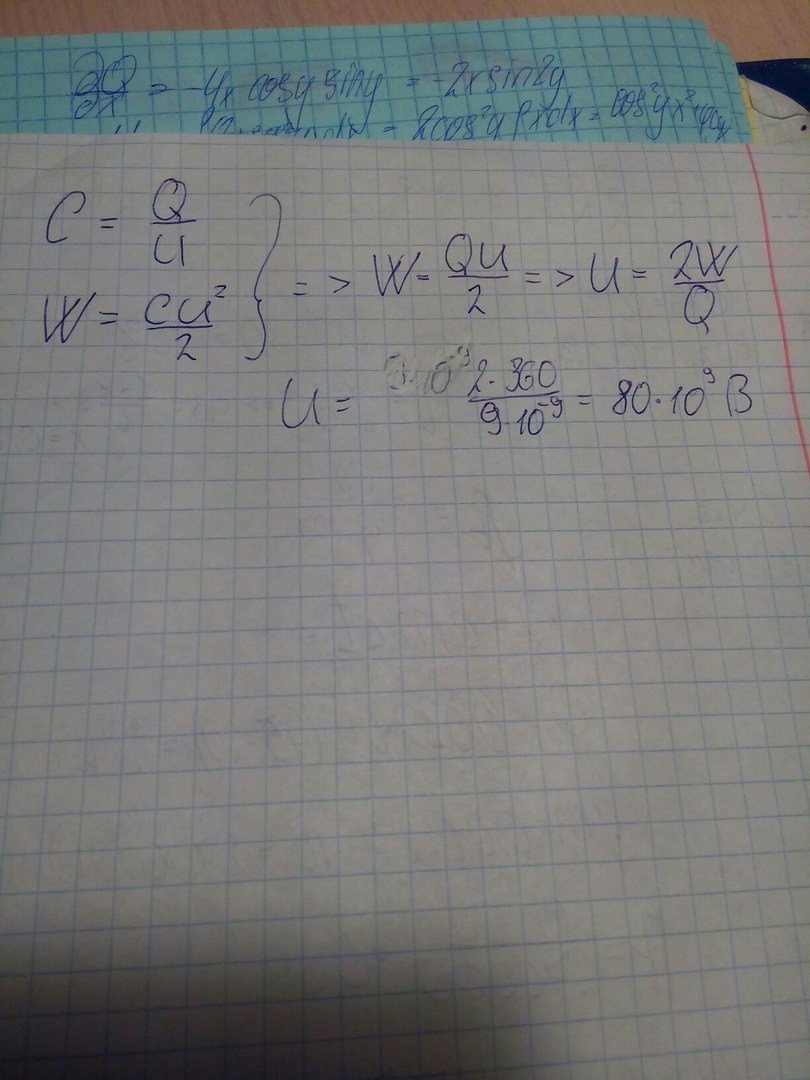 ∂Q/∂x = -4x cosy siny = -2x sin2y
= 2cos²y ∫xdx = cos²y x² +
C = Q/U
W = CU²/2
} => W = QU/2 => U = 2W/Q
U = 2·360/9·10⁻⁹ = 80·10⁹ В